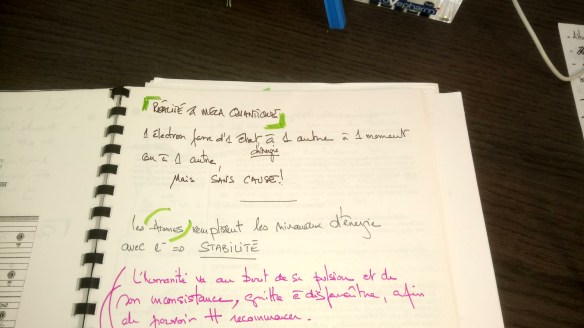 RÉALITÉ & MECA QUANTIQUE
1 électron passe d'1 état à 1 autre à 1 moment
d'énergie
ou à 1 autre,
Mais SANS CAUSE !
les Atomes remplissent les niveaux d'énergie
avec e- => STABILITÉ
L'humanité va au bout de sa pulsion et de
son inconsistance, quitte à disparaître, afin
de pouvoir # recommencer.